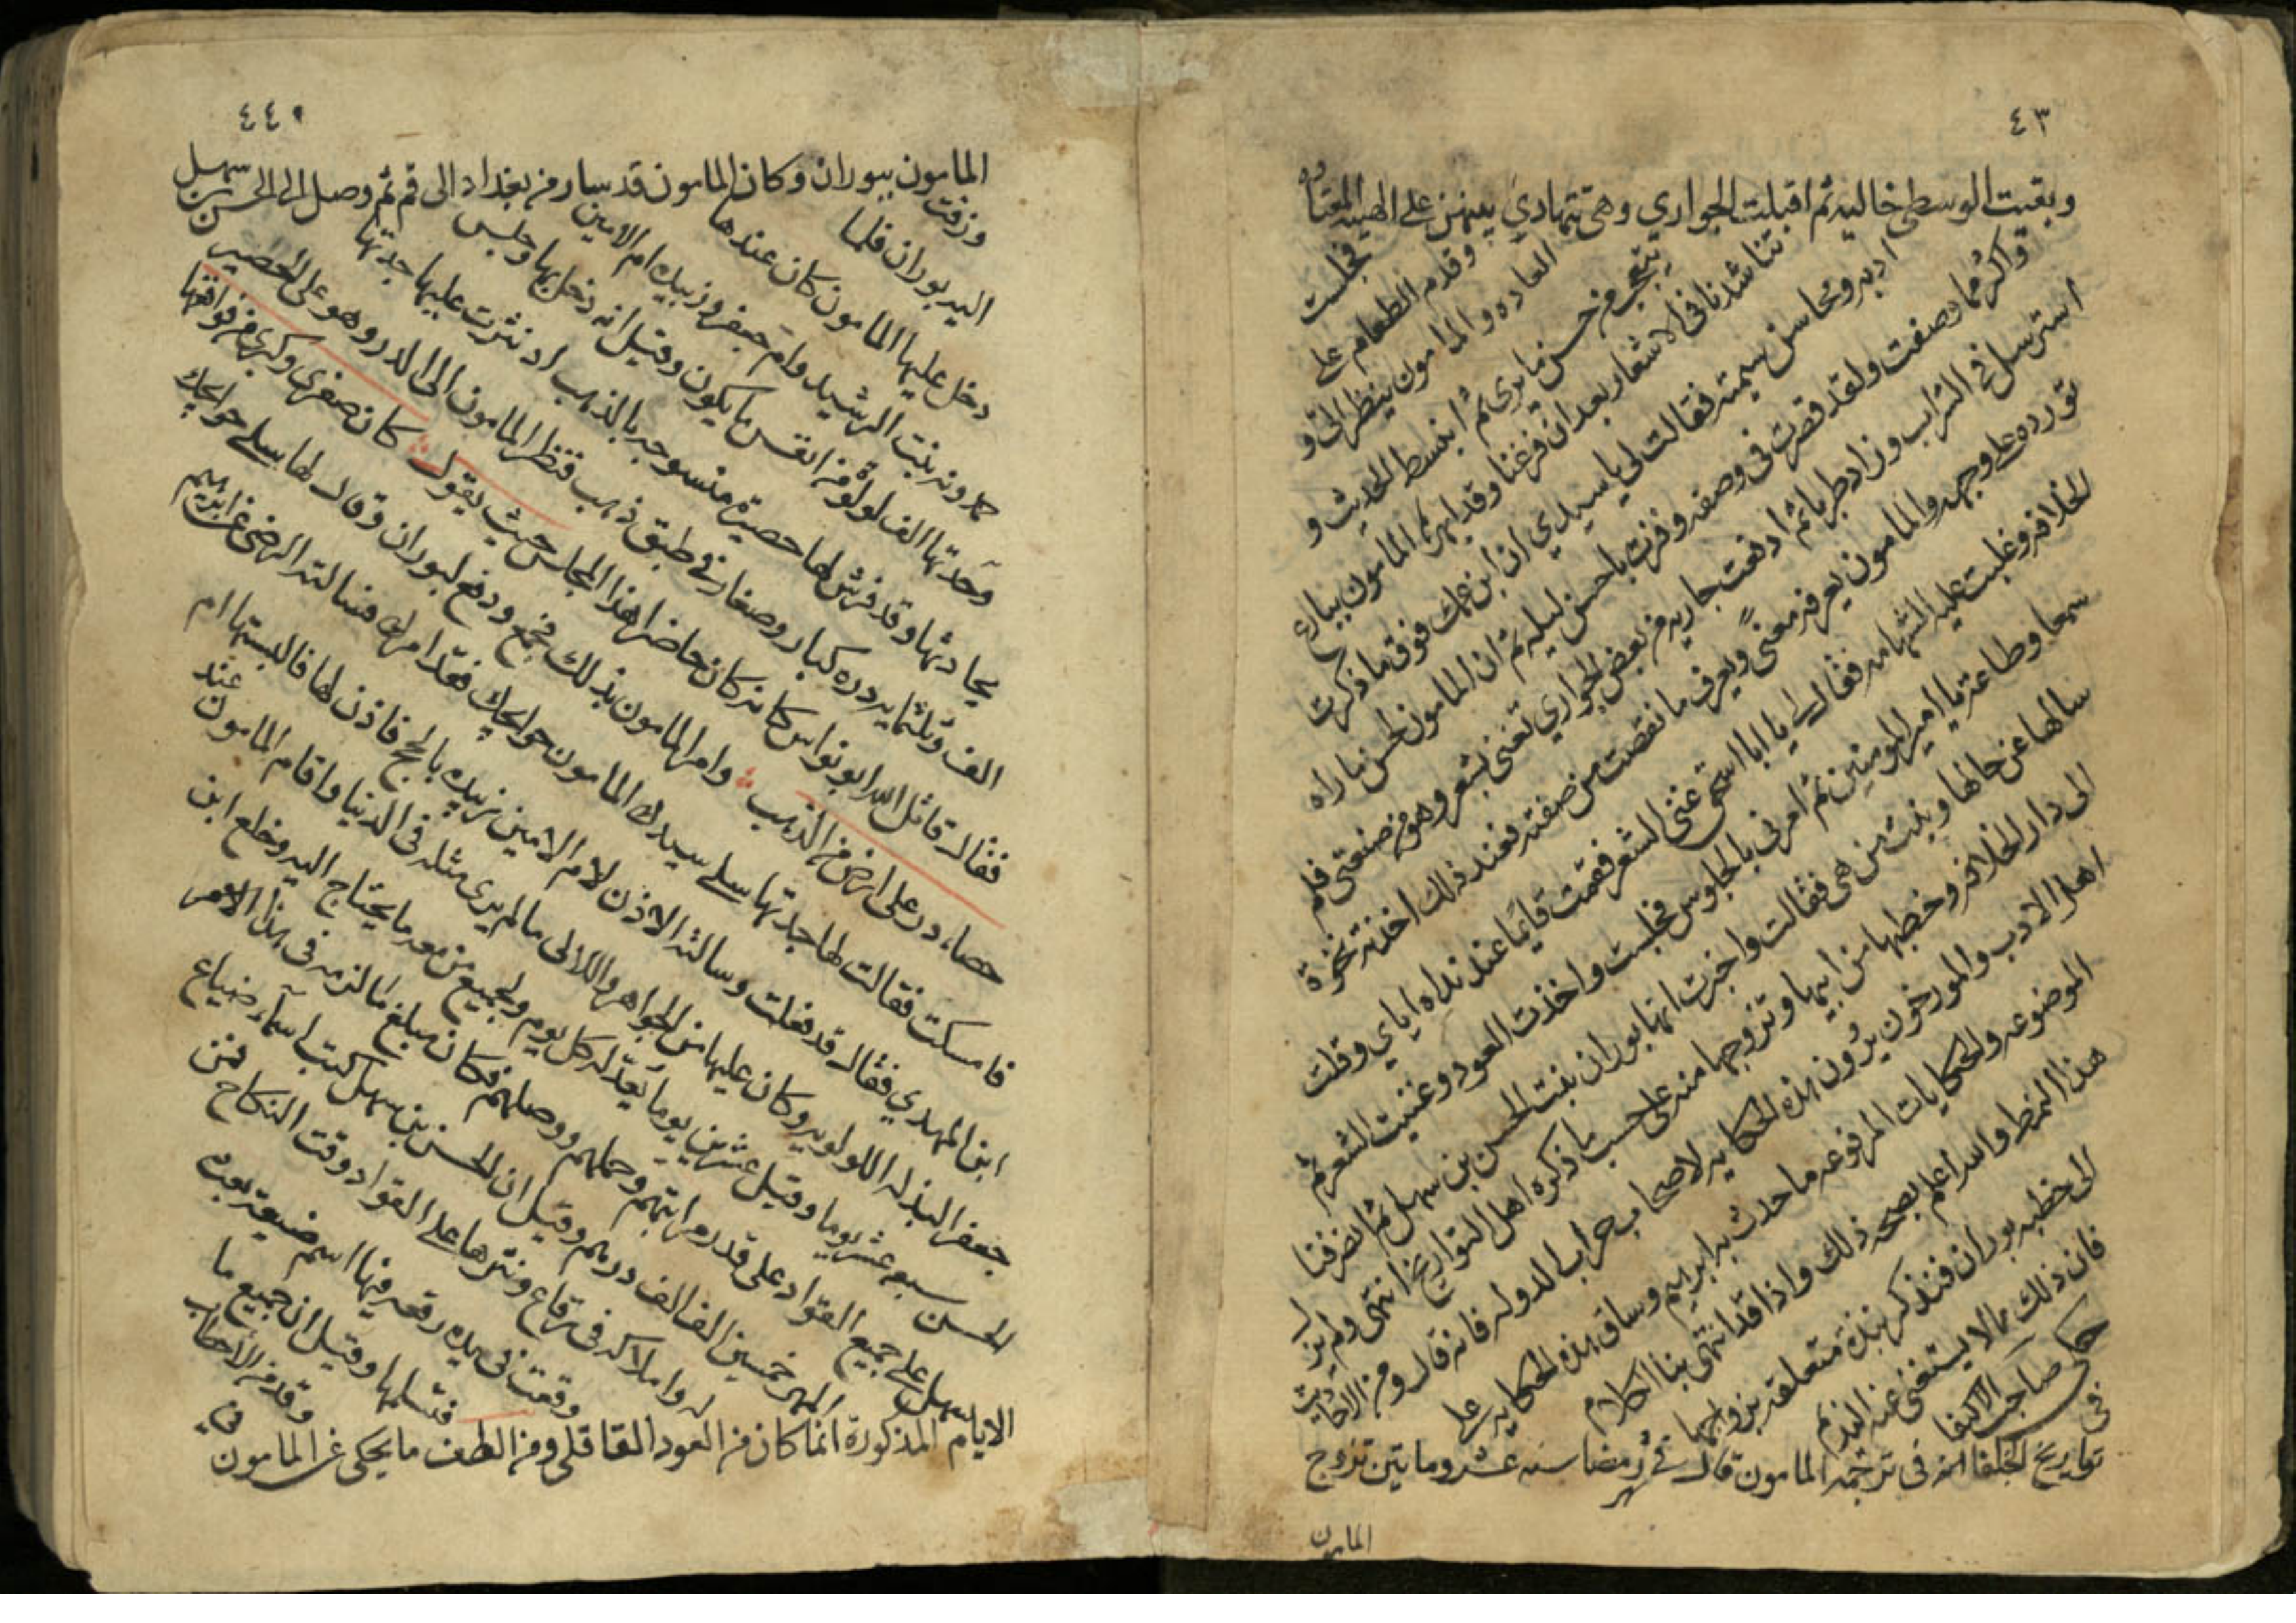 ٤٣
وبقيت الوسطى خاليه ثم اقبلت الجواري وهي تتهادي بينهن على الهييه المعتاده
فجلست
وقدم الطعام على
العاده والمامون ينظر الي و
يتعجب من حسن ما يرى ثم انبسط الحديث و
تتناشدنا في الاشعار بعد ان فرغنا وقد ابهر المامون بباع
ادبه ومحاسن شيمته فقالت لي يا سيدي ان ابن عمك فوق ما ذكرت
واكثر مما وصفت ولقد قصرت في وصفه وفزت باحسن ليله ثم ان المامون لحسن ما راه
استرسل في الشراب وزاد طربا ثم اندفعت جاريه من بعض الجواري تغني بشعر وهو من صنعتي فلم
تورده على وجهه والمامون يعرفه معنىً ويعرف ما نقصت من صنعته فعند ذلك اخذته نخوة
الخلافه وغلبت عليه الشهامه فقال لي يا ابا اسحق غنني الشعر فقمت قايما عند نداه اياي وقلت
سمعا وطاعة يا امير المومنين ثم امرني بالجلوس فجلست واخذت العود وغنيت الشعر ثم
سالها عن حالها وبنت من هي فقالت واخبرت انها بوران بنت الحسن بن سهل ثم انصرفنا
الى دار الخلافه وخطبها من ابيها وتزوجها منه على حسب ما ذكره اهل التواريخ انتهى ولم يزل
اهل الادب والمورخون يرُون هذه الحكايه لاصحاب جراب الدوله فانه قال ومن الاحاديث
الموضوعه والحكايات المرفوعه ما حدث به ابرهيم وساق هذه الحكايه على
هذا النمط والله اعلم بصحه ذلك واذا قد انتهى بنا الكلام
الى خطبه بوران فنذكر نبذة متعلقه بزواجها
فان ذلك مما لا يستغني عنه النديم
حكى صاحب الاكتفا
في
تواريخ الخلفا انه في ترجمه المامون قال في شهر رمضا سنه عشر وماتين تزوج
المامون
٤٤٠
المامون ببوران وكان المامون قد سار من بغداد الى فم ثم وصل الى الحسن بن سهل
وزفت
اليه بوران فلما
دخل عليها المامون كان عندها
حمدونه بنت الرشيد وام جعفر زبيده ام الامين
وجدتها الف لولوة من انفس ما يكون وقيل انه دخل بها وجلس
يحادثها وقد فرش لها حصيرة منسوجه بالذهب اذ نثرت عليها جدتها
الف وثلثمايه دره كبار وصغار في طبق ذهب فنظر المامون الى الدر وهو على الحصير
فقال قاتل الله ابو نواس كانه كان حاضرا هذا المجلس حيث يقول كان صغرى وكبرى من فواقعها
حصباء در على ارض من الذهب وامر المامون بذلك فجمع ودفع لبوران وقال لها سلي حوايجك
فامسكت فقالت لها جدتها سلي سيدك المامون حوايجك فقد امرك فسالته الرضى عن ابرهيم
ابن المهدي فقال قد فعلت وسالته الاذن لام الامين زبيده بالحج فاذن لها فالبستها ام
جعفر البذله اللولويه وكان عليها من الجواهر واللالي ما لم يرى مثله في الدنيا واقام المامون
عند
الحسن سبعه عشر يوما وقيل عشرين يوما يُعدّ له كل يوم ولجميع من معه ما يحتاج اليه وخلع ابن
سهل على جميع القواد على قدر مراتبهم وحملهم ووصلهم فكان مبلغ ما لزمه في هذا الامر
المهر خمسين الف الف درهم وقيل ان الحسن بن سهل كتب اسماء ضياع
له واملاكه في رقاع ونثرها على القواد وقت النكاح فمن
وقعت في يده رقعه فيها اسم ضيعة بعث
فتسلمها وقيل ان جميع ما
وقد من الاحطاب
في
الايام المذكورة انما كان من العود القاقلي ومن الطف ما يحكى عن المامون